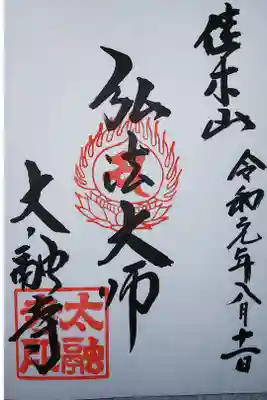 佳木山
令和元年八月十一日
弘法大師
太融寺
太融
寺印